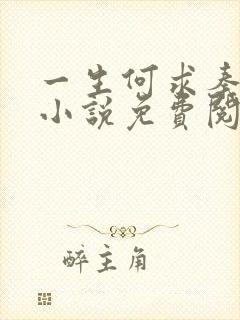 一生何求秦
小説免費閱
醉主角